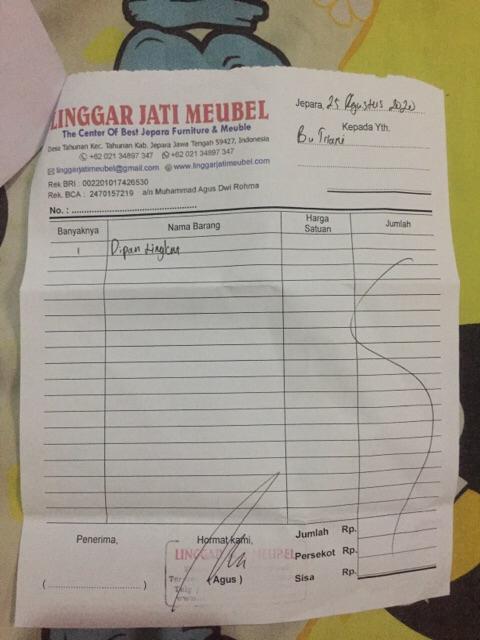 LINGGAR JATI MEUBEL
The Center Of Best Jepara Furniture & Meuble
Desa Tahunan Kec. Tahunan Kab. Jepara Jawa Tengah 59427, Indonesia
+62 021 34897 347 +62 021 34897 347
linggarjatimeubel@gmail.com www.linggarjatimeubel.com
Rek BRI : 002201017426530
Rek. BCA : 2470157219 a/n Muhammad Agus Dwi Rohma
No. :
Jepara, 25 Agustus 2020
Kepada Yth.
Bu Triani
Banyaknya Nama Barang Harga Satuan Jumlah
1 Dipan
Penerima, Hormat kami,
LINGGAR JATI MEUPEL
(....................) (Agus )
Jumlah Rp.
Persekot Rp.
Sisa Rp.